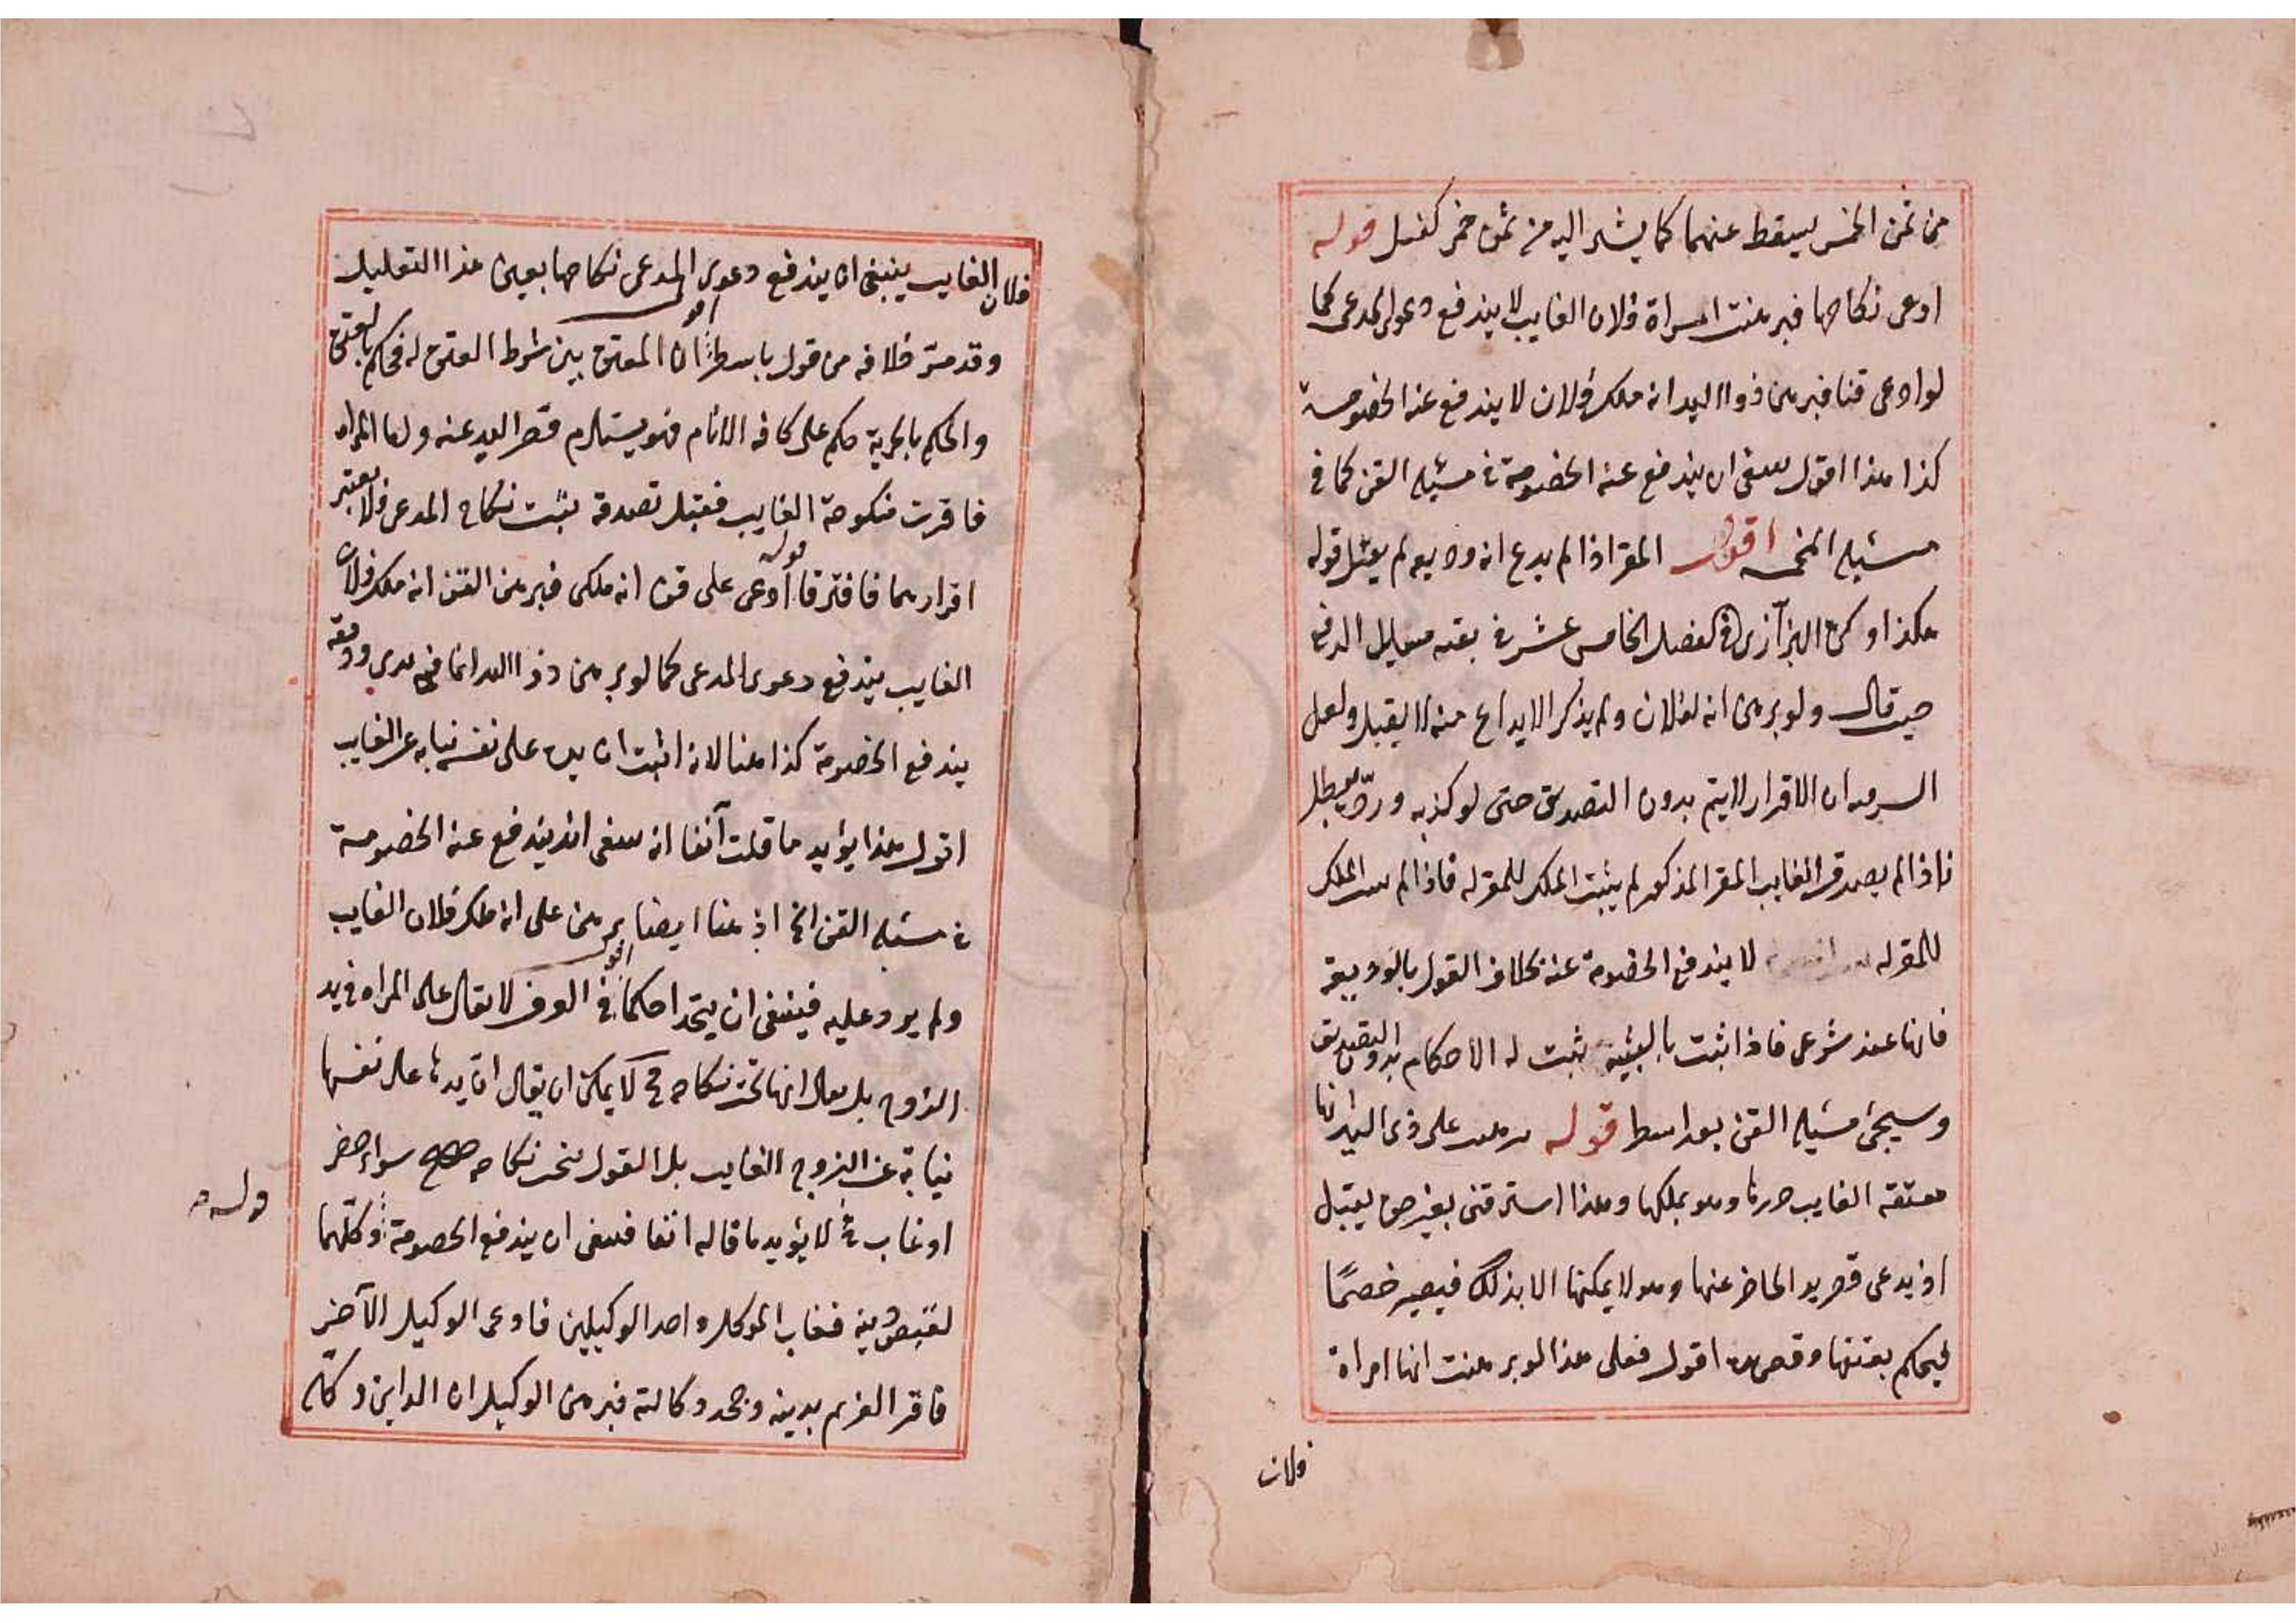 من ثمن الخمر يسقط عنهما كما يشير اليه من ثمن خمر كفيل قوله
ادعى نكاحها فبرهنت امراة فلان الغايب لا يندفع دعوى المدعى كما
لو ادعى قنا فبرهن ذو اليد انه ملك فلان لا يندفع عنه الخصومة
كذا هذا اقول ينبغى ان يندفع عنه الخصومة فى مسئلة القن كما فى
مسئلة المخمسه اقول المقر اذا لم يدع انه وديعه لم يقبل قوله
هكذا ذكره البزازى فى الفصل الخامس عشر فى بقيه مسايل الدفع
حيث قال ولو برهن انه لفلان ولم يذكر الايداع منه لا يقبل ولعل
السر فيه ان الاقرار لا يتم بدون التصديق حتى لو كذبه ورده يبطل
فاذا لم يصدق الغايب المقر المذكور لم يثبت الملك للمقر له فاذا لم يثبت الملك
للمقر له لا يندفع الخصومة عنه بخلاف القول بالوديعة
فانها عقد شرعى فاذا ثبت بالبينة يثبت له الاحكام بدون التصديق
وسيجئ مسئلة القن بعد اسطر قوله برهنت على ذى اليد انها
معتقه الغايب حررها وهو يملكها وهذا استرقنى بغير حق يقبل
اذ يدعى قصر يد الحاضر عنها وهو لا يمكنها الا بذلك فيصير خصمًا
ليحكم بعتقها وقصر يده اقول فعلى هذا لو برهنت انها امراة
فلان
فلان الغايب ينبغى ان يندفع دعوى المدعى نكاحها بعين هذا التعليل
وقد مر خلافه من قول باسطر اقول ان المعتق بين شرط العتق له فحكم بالعتق
والحكم بالحرية حكم على كافه الانام فهو يستلزم قصر اليد عنه واما المراه
فاقرت منكوحة الغايب فقبل تصديقه يثبت نكاح المدعى فلا يعتبر
اقرارهما فافترقا قوله ادعى على قن انه ملكى فبرهن القن انه ملك فلان
الغايب يندفع دعوى المدعى كما لو برهن ذو اليد انها فى يدى وديعة
يندفع الخصومة كذا هنا لانه اثبت ان يده على نفسه نيابه عن الغايب
اقول هذا يؤيد ما قلت آنفا انه ينبغى ان يندفع عنه الخصومة
فى مسئلة القن الخ اذ هنا ايضا برهن على انه ملك فلان الغايب
ولم يرد عليه فينبغى ان يتحدا حكما اقول فى العرف لا يقال على المراه فى يد
الزوج بل يقال انها تحت نكاحه فح لا يمكن ان يقال ان يدها على نفسها
نيابة عن الزوج الغايب بل القول تحت نكاحه صحيح سواء حضر
او غاب فلا يؤيد ما قاله انفا فينبغى ان يندفع الخصومة وكلهما
قوله
لقبض دينه فغاب الموكل واحد الوكيلين فادعى الوكيل الآخر
فاقر الغريم بدينه وجحد وكالته فبرهن الوكيل ان الداين وكله